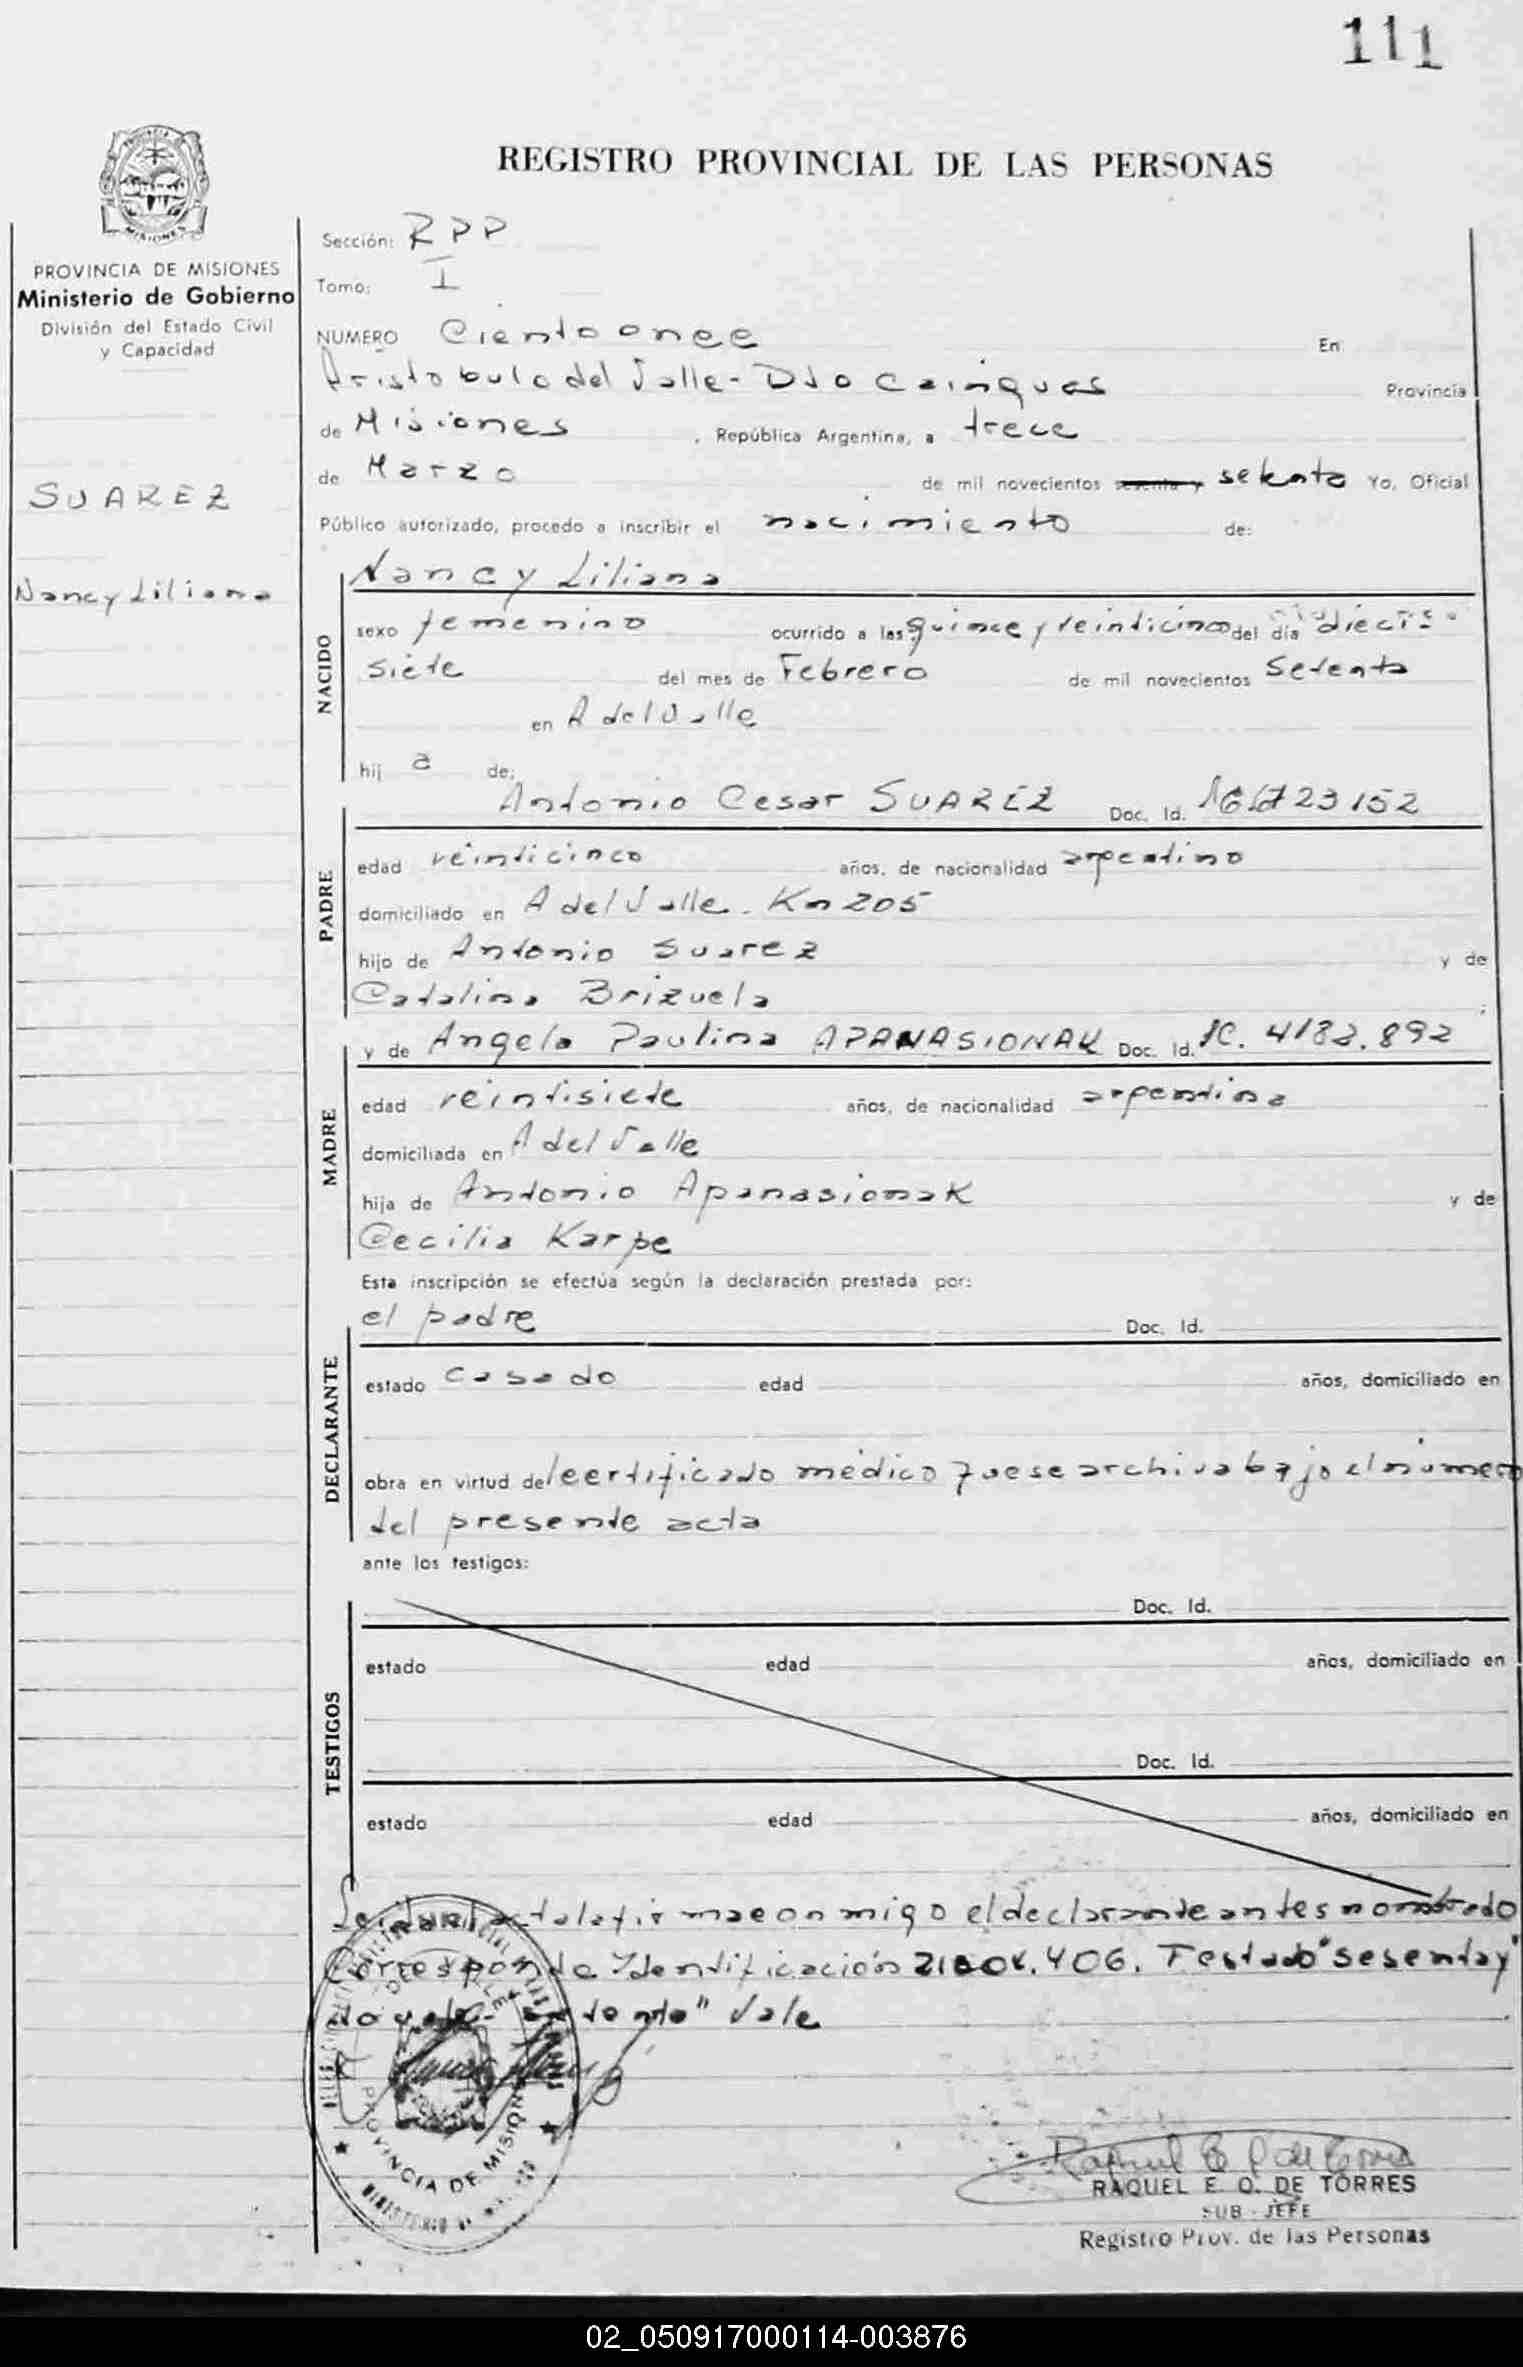 111
REGISTRO PROVINCIAL DE LAS PERSONAS
PROVINCIA
MISIONES
PROVINCIA DE MISIONES
Ministerio de Gobierno
División del Estado Civil
y Capacidad
SUAREZ
Nancy Liliana
Sección: RPP
Tomo: I
NUMERO Ciento once En
Aristobulo del Valle - Dto Cainguas Provincia
de Misiones, República Argentina, a trece
de Marzo de mil novecientos sesenta y setenta Yo, Oficial
Público autorizado, procedo a inscribir el nacimiento de:
Nancy Liliana
NACIDO
sexo femenino ocurrido a las quince y veinticinco del día dieci-
siete del mes de Febrero de mil novecientos setenta
en A del Valle
hij a de:
Antonio Cesar SUAREZ Doc. Id.
PADRE
edad veinticinco años, de nacionalidad argentino
domiciliado en A del Valle. Km 205
hijo de Antonio Suarez y de
Catalina Brizuela
y de Angela Paulina APANASIONAK Doc. Id. 4182.892
MADRE
edad veintisiete años, de nacionalidad argentina
domiciliada en A del Valle
hija de Antonio Apanasionak y de
Cecilia Karpe
Esta inscripción se efectúa según la declaración prestada por:
el padre Doc. Id.
DECLARANTE
estado casado edad años, domiciliado en
obra en virtud del certificado médico que se archiva bajo el número
del presente acta
ante los testigos:
Doc. Id.
TESTIGOS
estado edad años, domiciliado en
Doc. Id.
estado edad años, domiciliado en
Leida el acta la firma conmigo el declarante antes nombrado
Corresponde Identificación 406. Testado "sesenta y"
No vale - "setenta" Vale
PROVINCIA DE MISIONES
RAQUEL E. O. DE TORRES
SUB-JEFE
Registro Prov. de las Personas
02_050917000114-003876